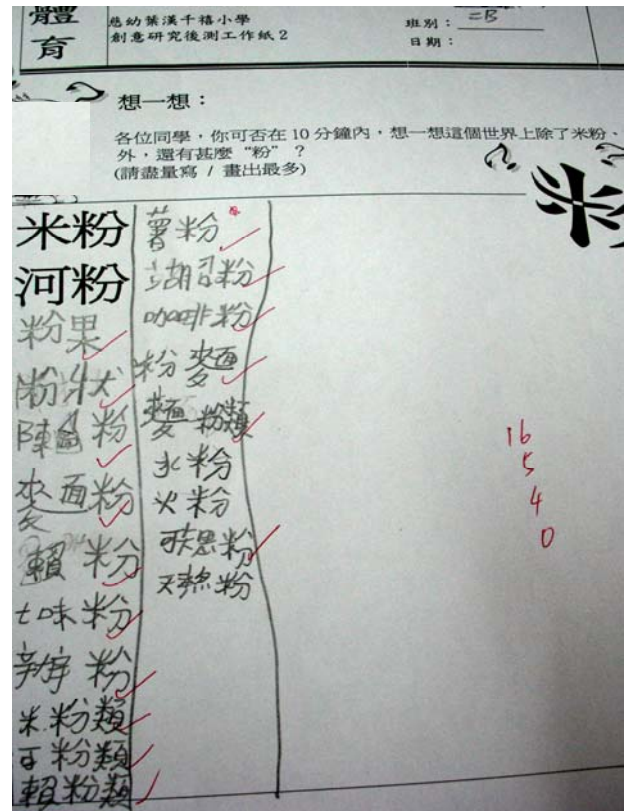 體育
慈幼葉漢千禧小學
創意研究後測工作紙 2
班別：二B
日期：
想一想：
各位同學，你可否在 10 分鐘內，想一想這個世界上除了米粉、
外，還有甚麼 “粉” ？
(請盡量寫 / 畫出最多)
米
米粉
河粉
粉果
粉狀
麥面粉
賴粉
七味粉
米粉類
賴粉類
薯粉
咖啡粉
粉麵
麵粉類
水粉
火粉
16
5
4
0